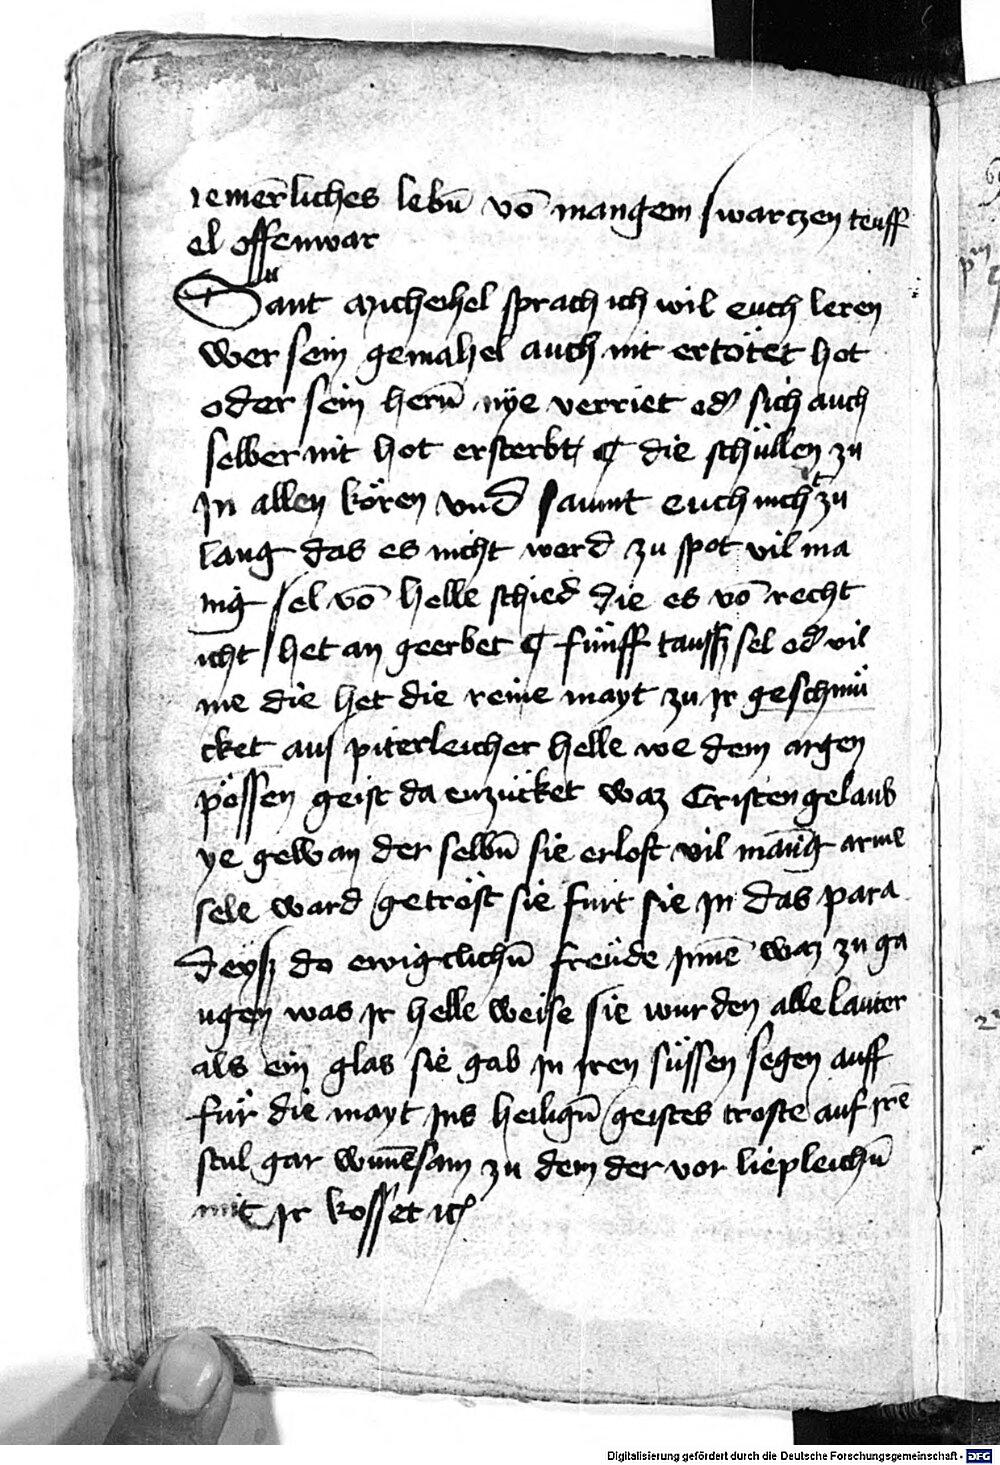 iemerliches lebn̄ vō mangem swartzen teuff
el offenwar
Sant Micheihel sprach ich wil euch leren
wer sein gemahel auch nit ertötet hot
oder sein hern̄ nÿe verriet od' sich auch
selber nit hot ersterbt ¶ die schüllen zu
In allen kören vnd saumt euch nicht zu
lang das es nicht werd zu spot vil ma
nig sel vō helle schied die es vō recht
icht het an geerbet ¶ fünff tauss sel od' vil
me die het die reine mayt zu Ir geschmü
cket aus piterleicher helle we dem argen
pössen geist da enzücket waz Cristen gelaub
ye gewan der selbn̄ sie erlost vil manig arme
sele ward getröst sie furt sie In das para
deÿsz do ewigclichn̄ freüde Inne waz zu ga
ngen was Ir helle weise sie wurden alle lauter
als ein glas sie gab In Iren süssen segen auff
fur die mayt Ins heilign̄ geistes troste auf Irē
stul gar wunēsam zu dem der vor liepleichn̄
mit Ir kosset
Digitalisierung gefördert durch die Deutsche Forschungsgemeinschaft - DFG